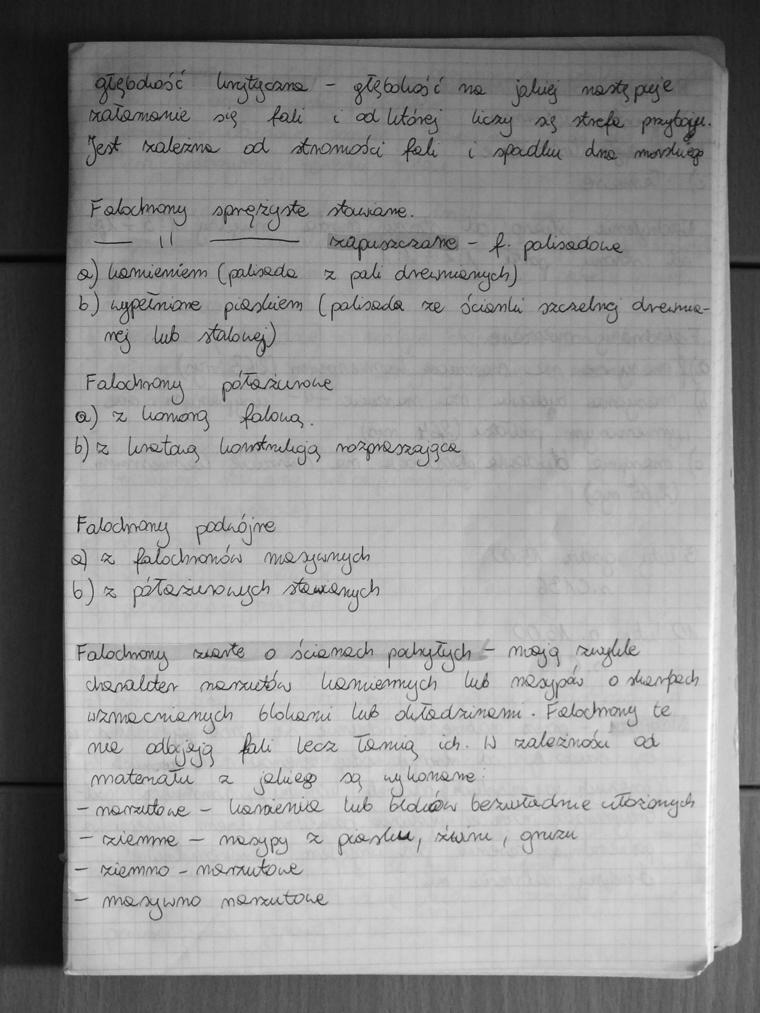 głębokość krytyczna - głębokość na jakiej następuje
załamanie się fali i od której liczy się strefa przyboju.
Jest zależna od stromości fali i spadku dna morskiego
Falochrony sprężyste stawiane.
— 11 — zapuszczane - f. palisadowe
a) kamieniem (palisada z pali drewnianych)
b) wypełnione piaskiem (palisada ze ścianki szczelnej drewnia-
nej lub stalowej)
Falochrony półażurowe
a) z komorą falową.
b) z kratową konstrukcją rozpraszającą
Falochrony podwójne
a) z falochronów masywnych
b) z półażurowych stawianych
Falochrony zwarte o ścianach pochyłych - mają zwykle
charakter narzutów kamiennych lub nasypów o skarpach
wzmacnianych blokami lub okładzinami. Falochrony te
nie odbijają fali lecz łamią ich. W zależności od
materiału z jakiego są wykonane:
- narzutowe - kamienia lub bloków bezwładnie ułożonych
- ziemne - nasypy z piasku, żwiru, gruzu
- ziemno - narzutowe
- masywno narzutowe